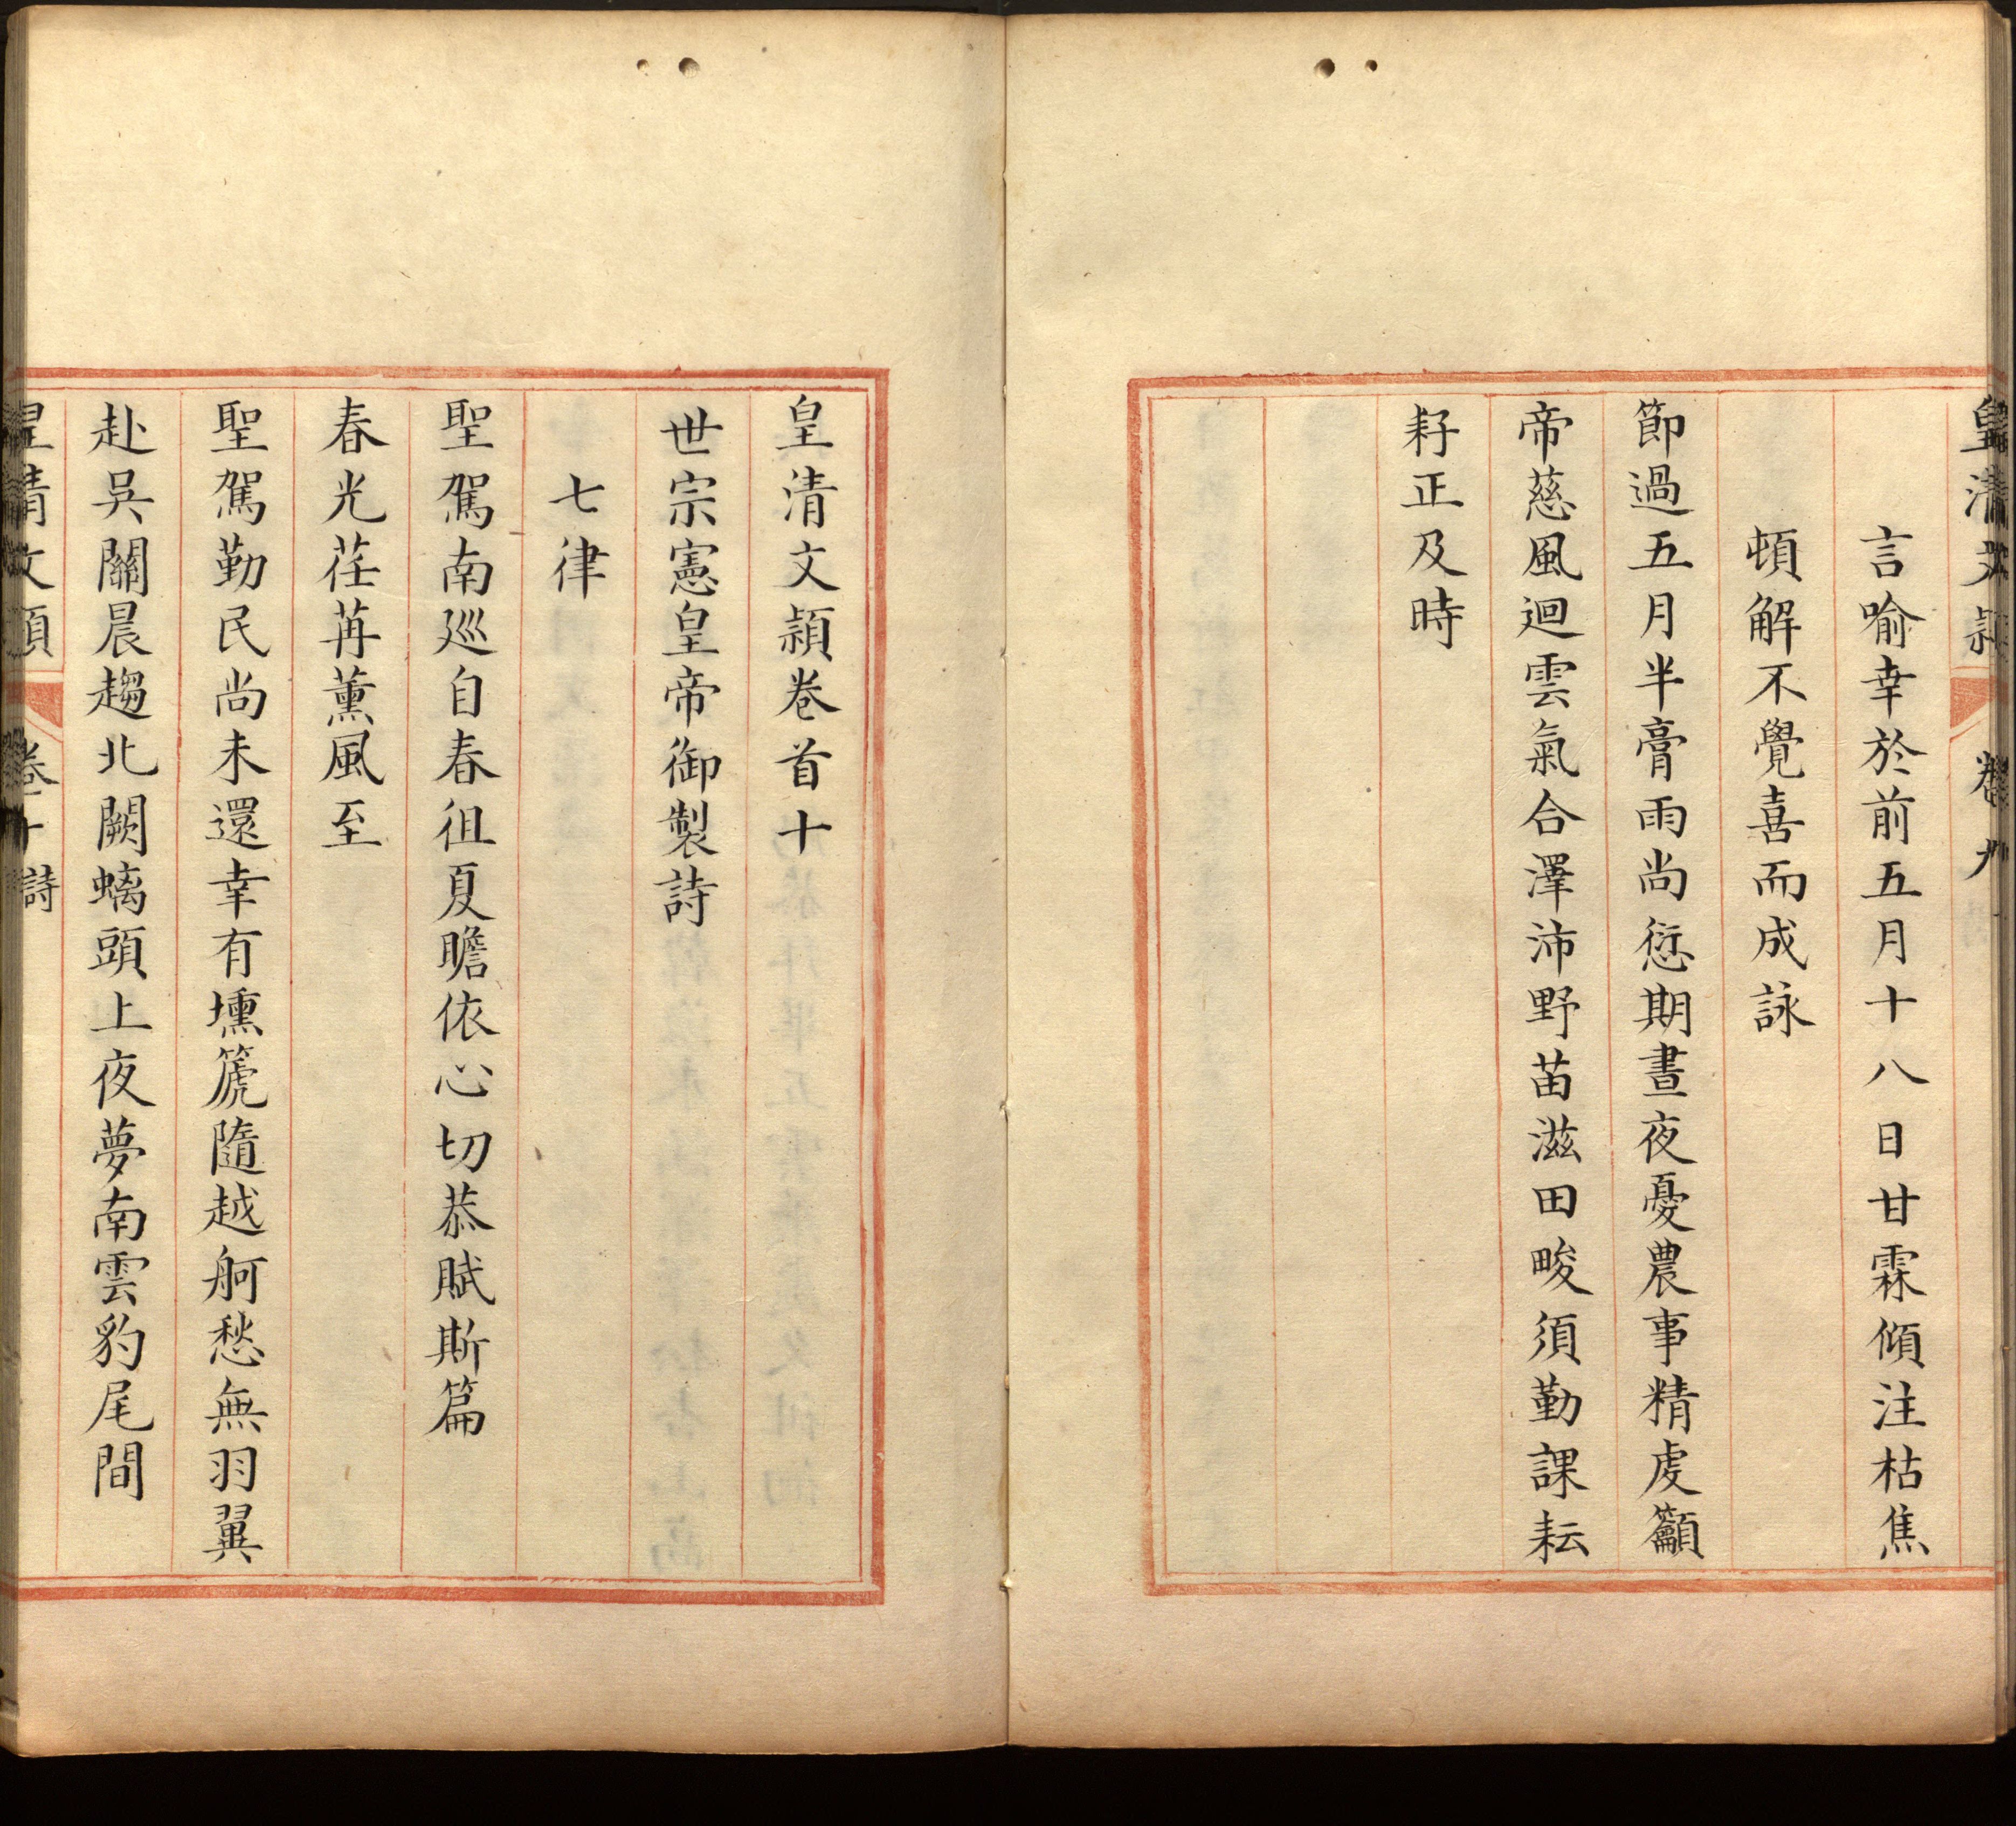 皇清文穎 卷九
言喻幸於前五月十八日甘霖傾注枯焦
頓解不覺喜而成詠
節過五月半膏雨尚愆期晝夜憂農事精虔籲
帝慈風迴雲氣合澤沛野苗滋田畯須勤課耘
耔正及時
皇清文穎卷首十
世宗憲皇帝御製詩
七律
聖駕南廵自春徂夏瞻依心切恭賦斯篇
春光荏苒薰風至
聖駕勤民尚未還幸有壎箎隨越舸愁無羽翼
赴吳關晨趨北闕螭頭上夜夢南雲豹尾間
皇清文穎 卷十詩